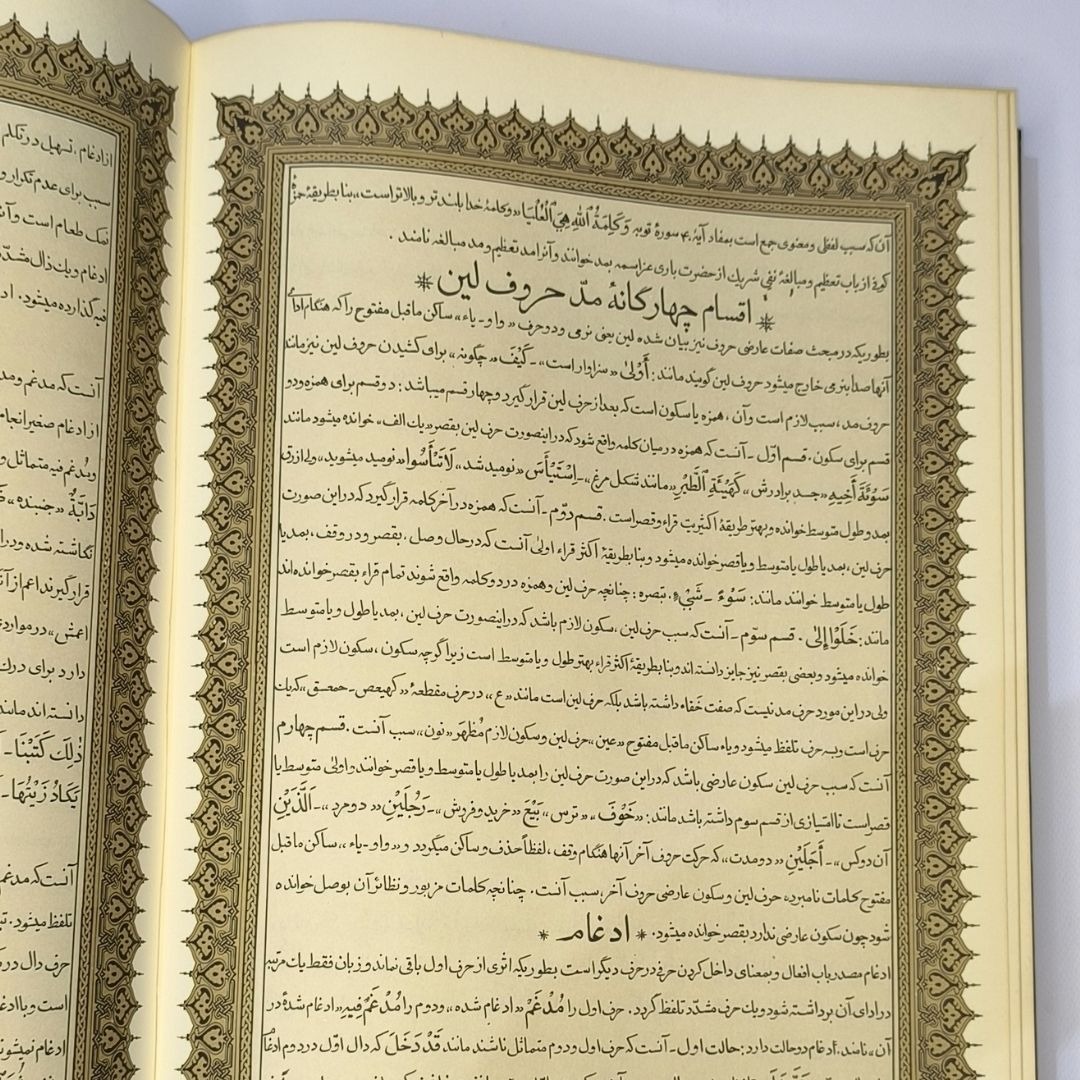 آن که سبب لفظی و معنوی جمع است بمفاد آیۀ ۴۰ سورۀ توبه وَ كَلِمَةُ ٱللهِ هِيَ ٱلْعُلْيَا «و کلمۀ خدا بلندتر و بالاتر است» بنا بطریقۀ حمزۀ
کوفی از باب تعظیم و مبالغۀ نفی شریك از حضرت باری عز اسمه بمد خوانند و آنرا مد تعظیم و مد مبالغه نامند .
* اقسام چهارگانۀ مدّ حروف لین *
بطوریکه در مبحث صفات عارضی حروف نیز بیان شده لین یعنی نرمی و دو حرف «واو - یاء» ساکن ماقبل مفتوح را که هنگام ادای
آنها صدا بنرمی خارج میشود حروف لین گویند مانند : أَوْلىٰ «سزاوار است» - كَيْفَ «چگونه» برای کشیدن حروف لین نیز مانند
حروف مد ، سبب لازم است و آن ، همزه یا سکون است که بعد از حرف لین قرار گیرد و چهار قسم میباشد : دو قسم برای همزه و دو
قسم برای سکون . قسم اوّل - آنست که همزه در میان کلمه واقع شود که در اینصورت حرف لین بقصر «یك الف» خوانده میشود مانند
سَوْئَةَ أَخِيهِ «جسد برادرش» كَهَيْئَةِ ٱلطَّيْرِ «مانند شکل مرغ» - اسْتَيْأَسَ «نومید شد» لَا تَيْأَسُوا «نومید میشوید» ولی ازرق
بمد و طول متوسط خوانده و بهتر طریقۀ اکثریت قراء و قصر است . قسم دوّم - آنست که همزه در آخر کلمه قرار گیرد که در این صورت
حرف لین ، بمد یا طول یا متوسط و یا قصر خوانده میشود و بنا بطریقۀ اکثر قراء اولیٰ آنست که در حال وصل ، بقصر و در وقف ، بمد یا
طول یا متوسط خوانند مانند : سَوْءَ - شَيْءٍ . تبصره : چنانچه حرف لین و همزه در دو کلمه واقع شوند تمام قراء بقصر خوانده‌اند
مانند : خَلَوْا إِلىٰ . قسم سوّم - آنست که سبب حرف لین ، سکون لازم باشد که در اینصورت حرف لین ، بمد یا طول و یا متوسط
خوانده میشود و بعضی بقصر نیز جایز دانسته‌اند و بنا بطریقۀ اکثر قراء بهتر طول و یا متوسط است زیرا گرچه سکون ، سکون لازم است
ولی در این مورد حرف مد نیست که صفت خفاء داشته باشد بلکه حرف لین است مانند «ع» در حرف مقطعۀ «کهیعص - حمعسق» که یك
حرف است و بسه حرف تلفظ میشود و یاء ساکن ماقبل مفتوح «عین» حرف لین و سکون لازم مُظهَر «نون» سبب آنست . قسم چهارم
آنست که سبب حرف لین سکون عارضی باشد که در این صورت حرف لین را بمد یا طول یا متوسط و یا قصر خوانند و اولیٰ متوسط یا
قصر است تا امتیازی از قسم سوم داشته باشد مانند : «خَوْفَ» «ترس» بَيْعَ «خرید و فروش» - رَجُلَيْنِ «دو مرد» - اَلَّذَيْنِ
آن دو کس» - أَجَلَيْنِ «دو مدت» که حرکت حروف آخر آنها هنگام وقف ، لفظاً حذف و ساکن میگردد و «واو - یاء» ساکن ماقبل
مفتوح کلمات نامبرده ، حرف لین و سکون عارضی حروف آخر ، سبب آنست . چنانچه کلمات مزبور و نظائر آن بوصل خوانده
شود چون سکون عارضی ندارد بقصر خوانده میشود .
* ادغام *
ادغام مصدر باب افعال و بمعنای داخل کردن حرفی در حرف دیگر است بطوریکه اثری از حرف اول باقی نماند و زبان فقط یك مرتبه
در ادای آن برداشته شود و یك حرف مشدّد تلفظ گردد . حرف اول را مُدْغَمْ «ادغام شده» و دوم را مُدْغَمٌ فِيهِ «ادغام شدۀ در
آن» نامند . ادغام دو حالت دارد : حالت اول - آنست که حرف اول و دوم متماثل باشند مانند قَدْ دَخَلَ که دال اوّل در دوم ادغام
از ادغام ، تسهیل در تکلم
سبب برای عدم تکرار و
نمك طعام است و آن
ادغام و یك ذال مشدّد
فیه گذارده میشود . اد
آنست که مدغم و مد
از ادغام صغیر انجام
و مدغم فیه متماثل و
دَابَّةٌ «جنبنده»
نگاشته شده و در ا
قرار گیرند اعم از آن
اعمش» در مواردی
دارد برای درك
دانسته‌اند مانند
ذٰلِكَ كَتَبْنَا -
يَكَادُ زَيْتُهَا -
آنست که مدغم
تلفظ میشود .
حرف دال در
است و با ادغا
ادغام نمیشوند